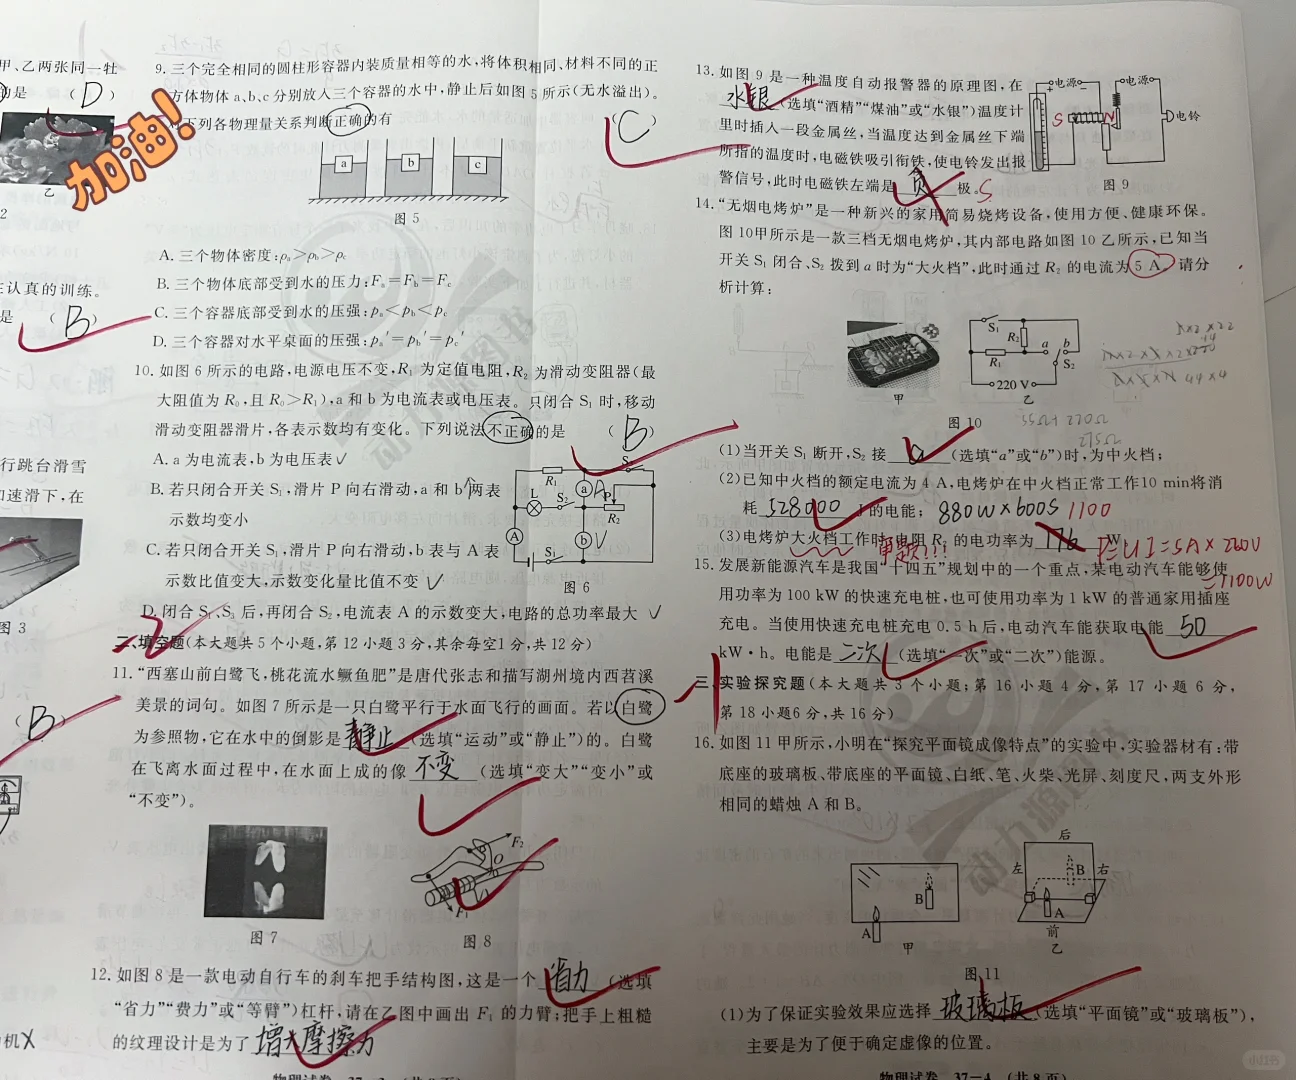 甲、乙两张同一牡
的是 ( D )
乙
2
加油!
在认真的训练。
是 ( B )
行跳台滑雪
加速滑下,在
图 3
( B )
机X
9. 三个完全相同的圆柱形容器内装质量相等的水,将体积相同、材料不同的正
方体物体 a、b、c 分别放入三个容器的水中,静止后如图 5 所示(无水溢出)。
对下列各物理量关系判断正确的有 ( C )
a b c
图 5
A. 三个物体密度:ρa>ρb>ρc
B. 三个物体底部受到水的压力:Fa=Fb=Fc
C. 三个容器底部受到水的压强:pa<pb<pc
D. 三个容器对水平桌面的压强:pa′=pb′=pc′
10. 如图 6 所示的电路,电源电压不变,R1 为定值电阻,R2 为滑动变阻器(最
大阻值为 R0,且 R0>R1),a 和 b 为电流表或电压表。只闭合 S1 时,移动
滑动变阻器滑片,各表示数均有变化。下列说法不正确的是 ( B )
A. a 为电流表,b 为电压表 √
B. 若只闭合开关 S1,滑片 P 向右滑动,a 和 b 两表
示数均变小
C. 若只闭合开关 S1,滑片 P 向右滑动,b 表与 A 表
示数比值变大,示数变化量比值不变 √
D. 闭合 S1、S3 后,再闭合 S2,电流表 A 的示数变大,电路的总功率最大 √
R1 a A P
L S2 R2
A b V
S1
图 6
-2
二、填空题(本大题共 5 个小题,第 12 小题 3 分,其余每空1 分,共 12 分)
11. “西塞山前白鹭飞,桃花流水鳜鱼肥”是唐代张志和描写湖州境内西苕溪
美景的词句。如图 7 所示是一只白鹭平行于水面飞行的画面。若以白鹭
为参照物,它在水中的倒影是 静止 (选填“运动”或“静止”)的。白鹭
在飞离水面过程中,在水面上成的像 不变 (选填“变大”“变小”或
“不变”)。
F2
O
F1
图 7 图 8
12. 如图 8 是一款电动自行车的刹车把手结构图,这是一个 省力 (选填
“省力”“费力”或“等臂”)杠杆,请在乙图中画出 F1 的力臂;把手上粗糙
的纹理设计是为了 增大摩擦力
13. 如图 9 是一种温度自动报警器的原理图,在
水银 (选填“酒精”“煤油”或“水银”)温度计
里时插人一段金属丝,当温度达到金属丝下端
所指的温度时,电磁铁吸引衔铁,使电铃发出报
警信号,此时电磁铁左端是 负 极。S
电源 电源
S N 电铃
图 9
14. “无烟电烤炉”是一种新兴的家用简易烧烤设备,使用方便、健康环保。
图 10甲所示是一款三档无烟电烤炉,其内部电路如图 10 乙所示,已知当
开关 S1 闭合、S2 拨到 a 时为“大火档”,此时通过 R2 的电流为 5 A。请分
析计算:
S1 R2 a b
R1 S2
220 V
甲 乙
图 10
55Ω+220Ω
275Ω
(1)当开关 S1 断开,S2 接 a (选填“a”或“b”)时,为中火档;
(2)已知中火档的额定电流为 4 A,电烤炉在中火档正常工作10 min将消
耗 528000 J 的电能; 880W×600S 1100
(3)电烤炉大火档工作时,电阻 R2 的电功率为 176 W。 P=UI=5A×220V
审题!!! =1100W
15. 发展新能源汽车是我国“十四五”规划中的一个重点,某电动汽车能够使
用功率为 100 kW 的快速充电桩,也可使用功率为 1 kW 的普通家用插座
充电。当使用快速充电桩充电 0.5 h 后,电动汽车能获取电能 50
kW·h。电能是 二次 (选填“一次”或“二次”)能源。
-1
三、实验探究题(本大题共 3 个小题;第 16 小题 4 分,第 17 小题 6 分,
第 18 小题6 分,共 16 分)
16. 如图 11 甲所示,小明在“探究平面镜成像特点”的实验中,实验器材有:带
底座的玻璃板、带底座的平面镜、白纸、笔、火柴、光屏、刻度尺,两支外形
相同的蜡烛 A 和 B。
后
左 B 右
B A
A 前
甲 乙
图 11
(1)为了保证实验效果应选择 玻璃板 (选填“平面镜”或“玻璃板”),
主要是为了便于确定虚像的位置。
动力源图书
小红书